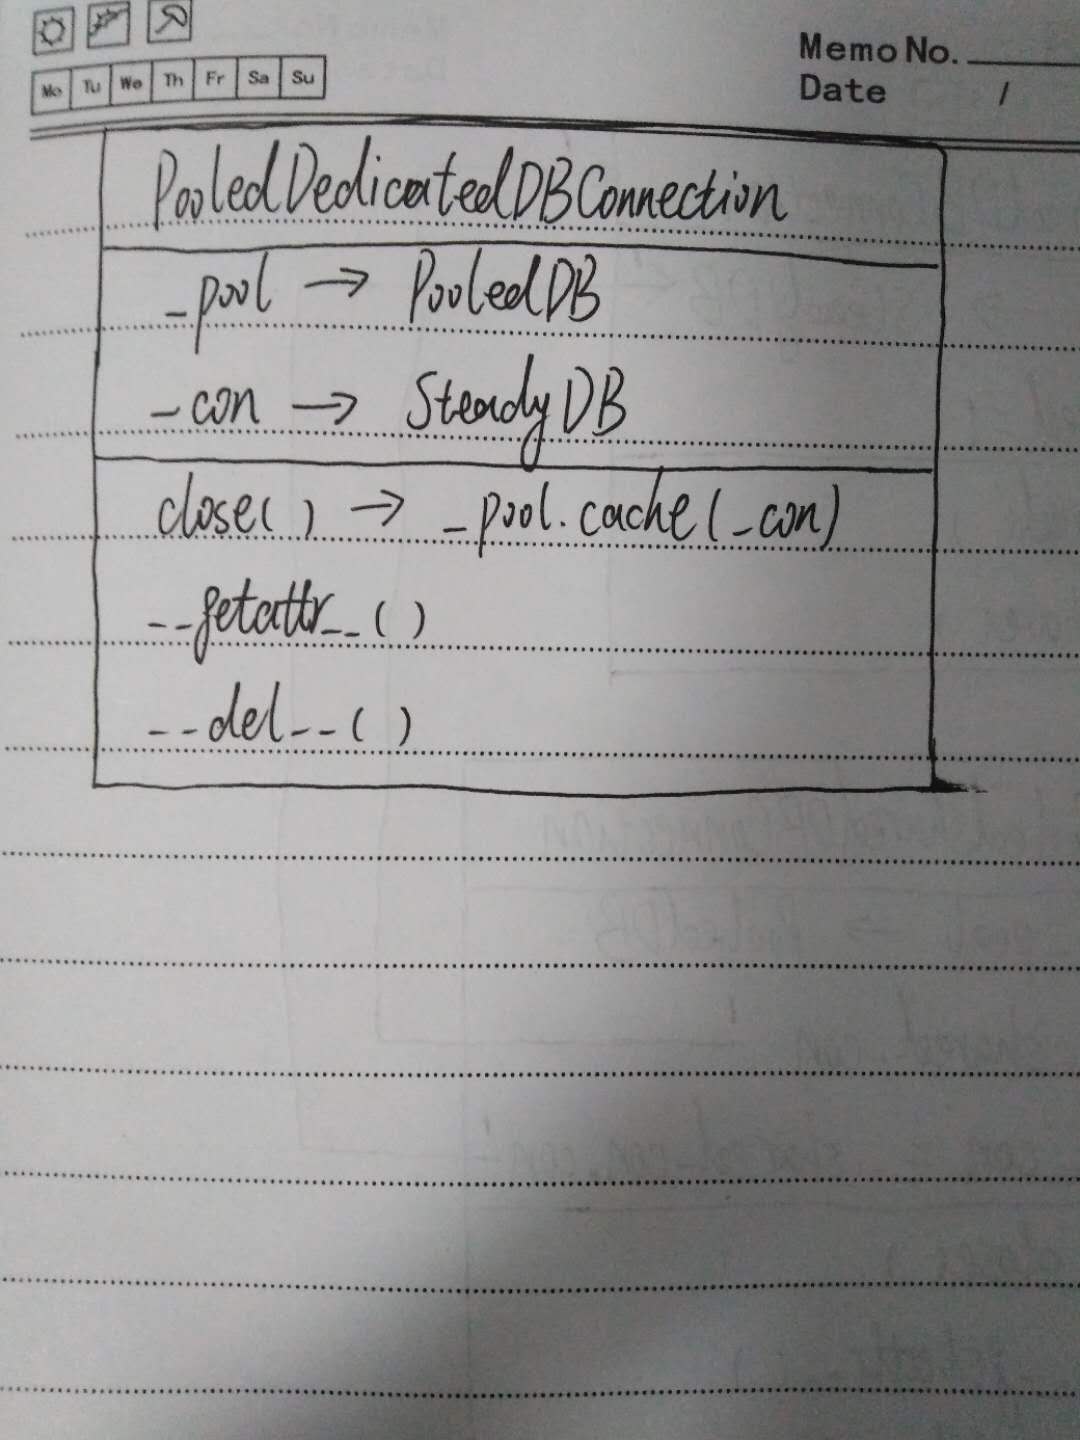 Mo Tu We Th Fr Sa Su
Memo No.
Date /
PooledDedicatedDBConnection
_pool → PooledDB
_con → SteadyDB
close() → _pool.cache(_con)
__getattr__()
__del__()